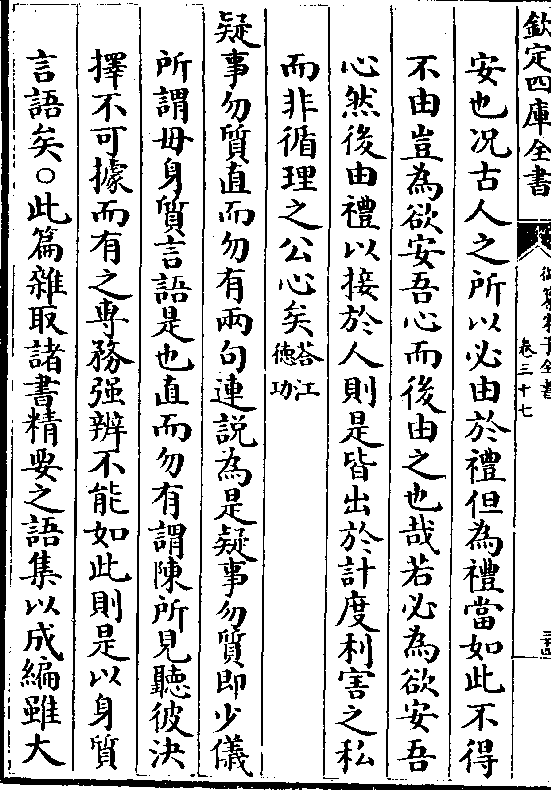 欽定四庫全書
御纂朱子全書
卷三十七
安也况古人之所以必由於禮但為禮當如此不得
不由豈為欲安吾心而後由之也哉若必為欲安吾
心然後由禮以接於人則是皆出於計度利害之私
而非循理之公心矣答江德功
疑事勿質直而勿有兩句連説為是疑事勿質即少儀
所謂毋身質言語是也直而勿有謂陳所見聽彼決
擇不可據而有之専務强辨不能如此則是以身質
言語矣○此篇雜取諸書精要之語集以成編雖大